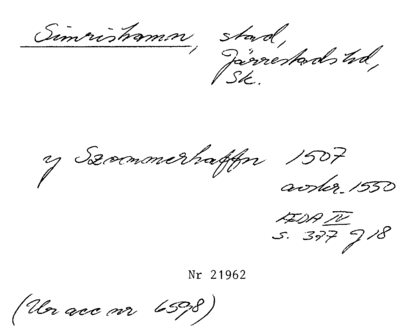 Simrishamn, stad,
Järrestads hd,
Sk.
y Szommerhaffn 1507
avskr. 1550
ÆDA IV
s. 327 f 18
Nr 21962
(Ur acc nr 659,8)